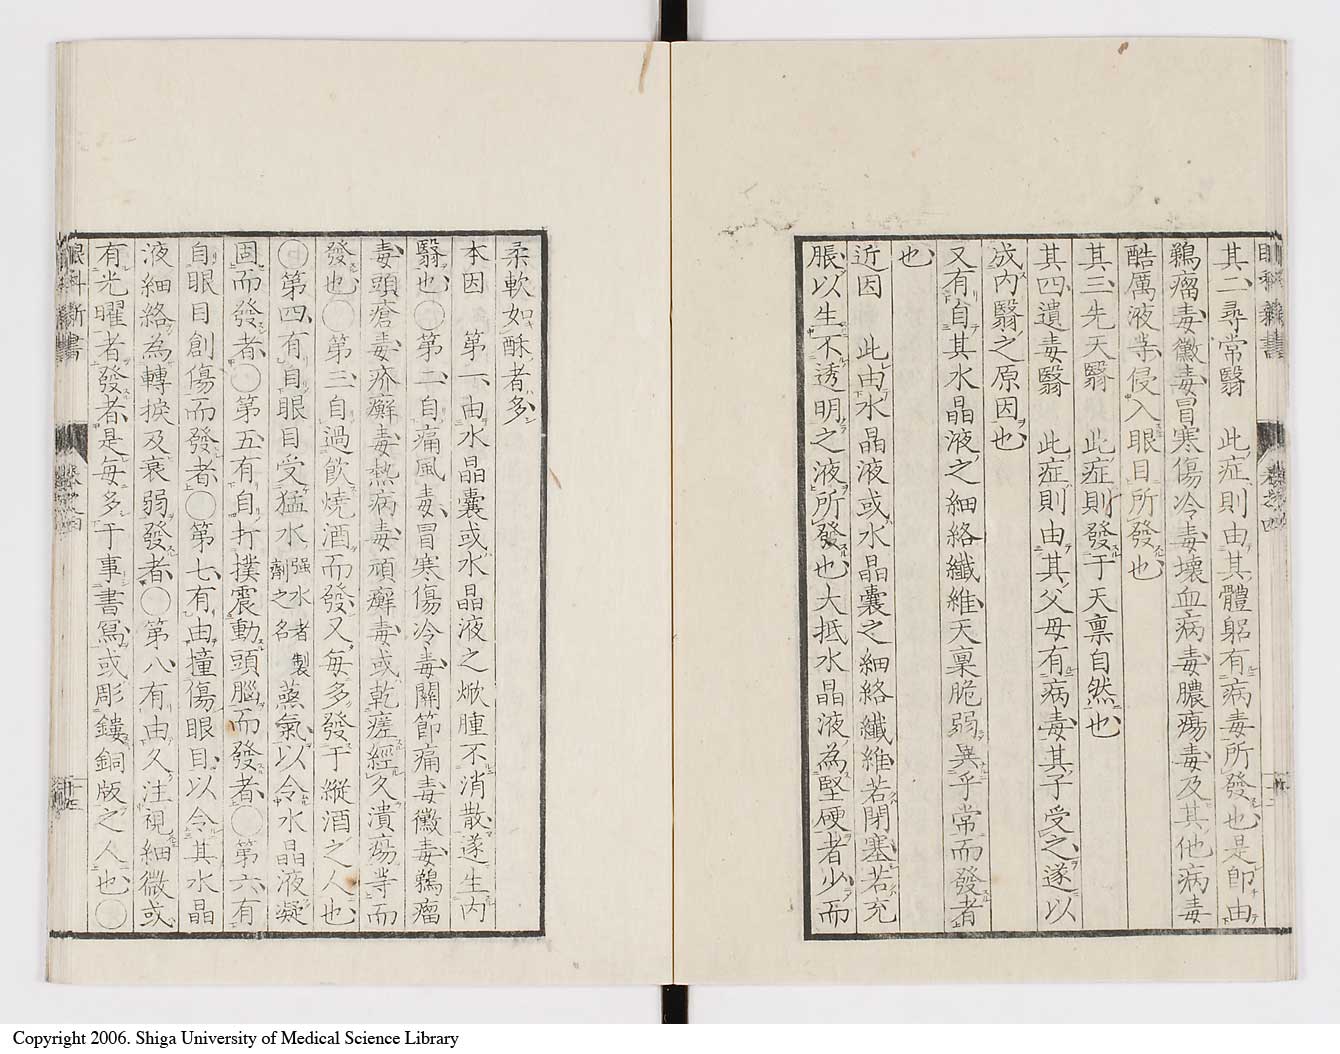 其二尋常翳　此症則由其體軀有病毒所發也是卽由
鵜瘤毒黴毒冒寒傷冷毒壊血病毒膿瘍毒及其他病毒
酷厲液等侵入眼目所發也
其三先天翳　此症則發于天稟自然也
其四遺毒翳　此症則由其父母有病毒其子受之遂以
成内翳之原因也
又有自其水晶液之細絡纖維天稟脆弱異乎常而發者
也
近因　此由水晶液或水晶囊之細絡纖維若閉塞若充
脹以生不透明之液所發也大抵水晶液為堅硬者少而
柔軟如酥者多
本因　第一由水晶囊或水晶液之焮腫不消散遂生内
翳也〇第二自痛風毒冒寒傷冷毒關節痛毒黴毒鵜瘤
毒頭瘡毒疥癬毒熱病毒頑癬毒或乾瘥經久潰瘍等而
發也〇第三自過飲燒酒而發又每多發于縱酒之人也
〇第四有自眼目受猛水强水者製劑之名蒸氣以令水晶液凝
固而發者〇第五有自打撲震動頭腦而發者〇第六有
自眼目創傷而發者〇第七有由撞傷眼目以令其水晶
液細絡為轉捩及衰弱發者〇第八有由久注視細微或
有光曜者發者是每多于事書寫或彫鏤銅版之人也〇
眼科新書
卷之四
Copyright 2006. Shiga University of Medical Science Library